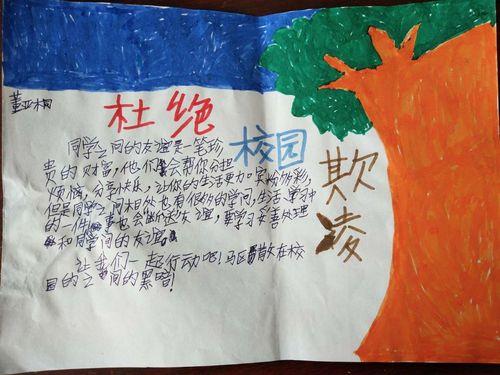 董亚桐
杜绝
校园
欺凌
同学之间的友谊是一笔珍
贵的财富,他们会帮你分担
烦恼,分享快乐,让你的生活更加缤纷多彩,
但是同学之间相处也有很多的学问,生活学习中
的一件事也会断送友谊,要学习妥善处理
和同学间的友谊。
让我们一起行动吧!马区散在校
目的之间的黑暗!